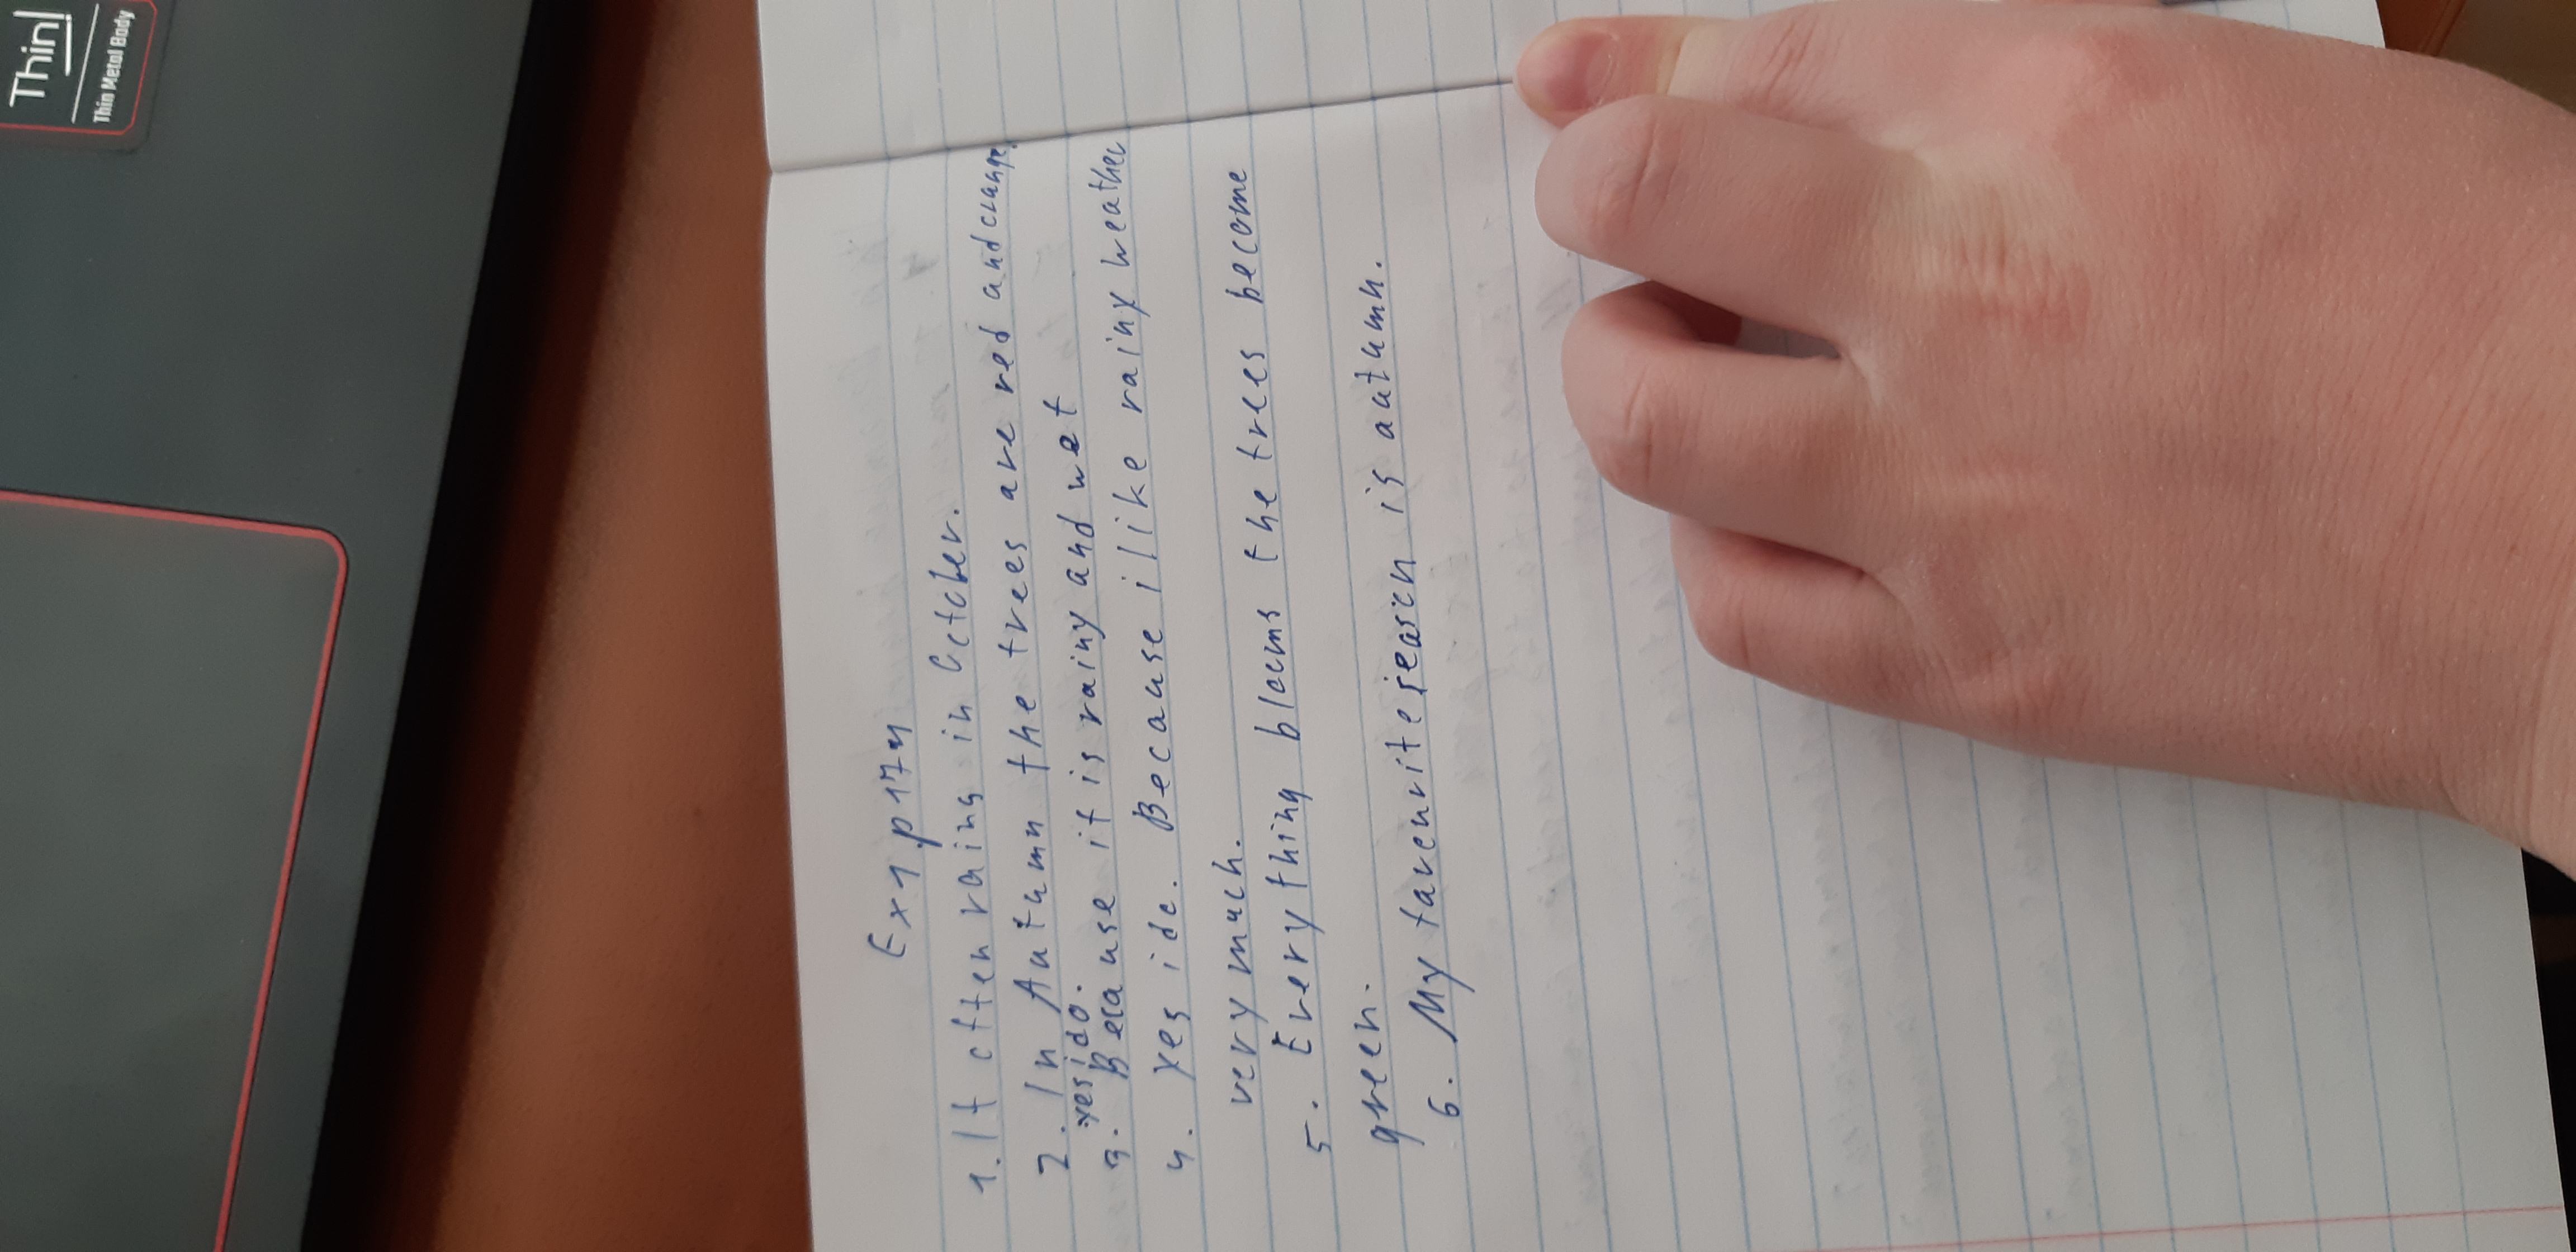 Thin
Thin Metal Body
Ex 1 p 174
1. It often rains in October.
2. In Autumn the trees are red and orange.
yes i do.
3. Because it is rainy and wet
4. yes i do. Because i like rainy weather
very much.
5. Every thing blooms the trees become
green.
6. My favourite season is autumn.